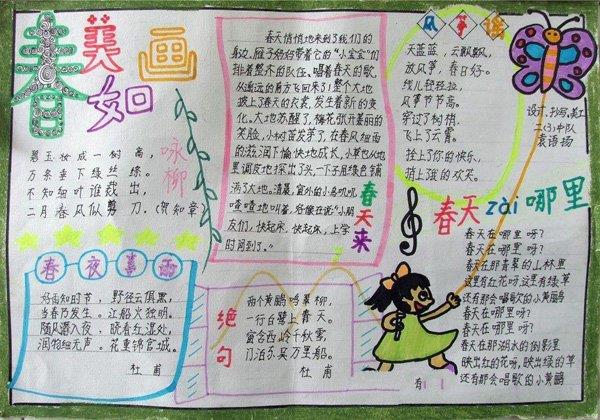 春
美
如
画
咏柳
碧玉妆成一树高,
万条垂下绿丝绦。
不知细叶谁裁出,
二月春风似剪刀。(贺知章)
春夜喜雨
好雨知时节,野径云俱黑,
当春乃发生。江船火独明。
随风潜入夜,晓看红湿处,
润物细无声。花重锦官城。
杜甫
春天悄悄地来到了我们的
身边。雁子妈妈带着它的“小宝宝”们
排着整齐的队伍、唱着春天的歌,
从遥远的南方飞回来了!整个大地
披上了春的衣裳,发生着新的变
化。大地苏醒了,梅花张开蔓丽的
笑脸,小树苗发芽了,在春风细雨
的滋润下愉快地成长,小草也从地
里调皮地探出了头,一下子用绿色铺
满了大地。清晨,窗外的小鸟叽叽
喳喳地叫着,好像在说:“小朋
友们,快起来,快起来,上学
时间到了。”
春天来
绝句
两个黄鹂鸣翠柳,
一行白鹭上青天。
窗含西岭千秋雪,
门泊东吴万里船。
杜甫
风筝谣
天蓝蓝,云飘飘,
放风筝,春日好。
线儿轻轻拉,
风筝节节高。
穿过了树梢,
飞上了云霄。
拴上了你的快乐,
捎上我的欢笑。
设计、抄写、美工
二(3)中队
袁语扬
春天zài哪里
春天在哪里呀?
春天在哪里呀?
春天在那青翠的山林里
这里有红花呀这里有绿草
还有那会唱歌的小黄鹂
春天在哪里呀?
春天在哪里呀?
春天在那湖水的倒影里
映出红的花呀,映出绿的草
还有那会唱歌的小黄鹂